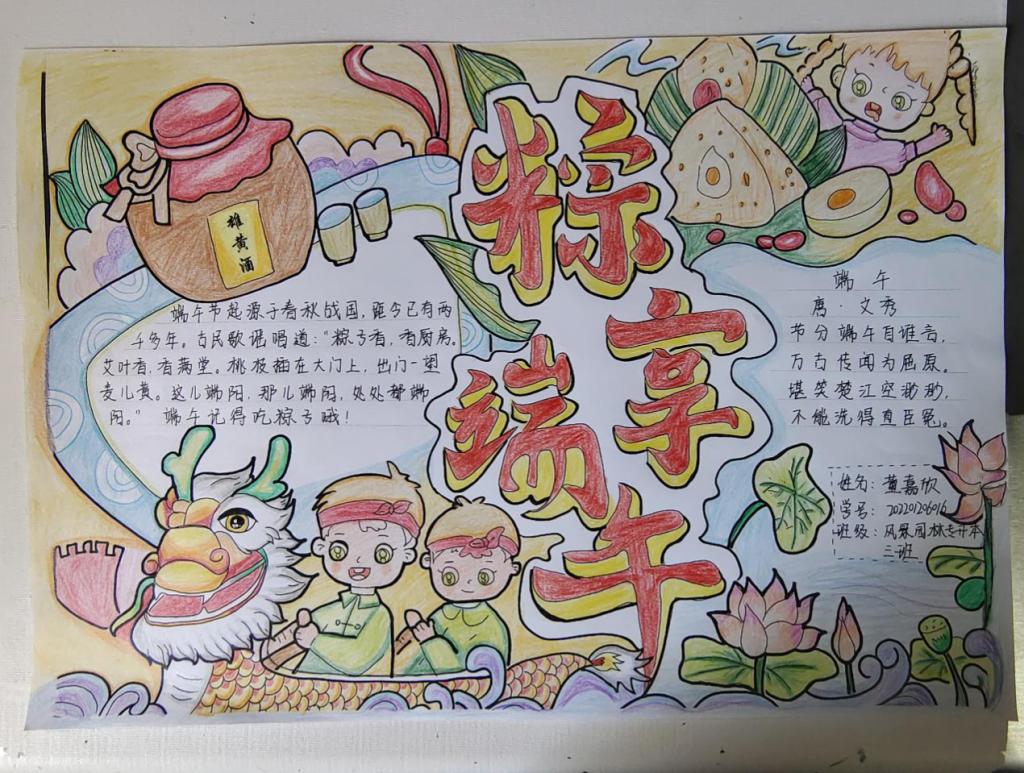 粽享端午
雄黄酒
端午节起源于春秋战国,距今已有两
千多年。古民歌谣唱道:“粽子香,香厨房。
艾叶香,香满堂。桃枝插在大门上,出门一望
麦儿黄。这儿端阳,那儿端阳,处处都端
阳。” 端午记得吃粽子哦!
端 午
唐·文秀
节分端午自谁言,
万古传闻为屈原。
堪笑楚江空渺渺,
不能洗得直臣冤。
姓名:黄嘉欣
学号:202201206016
班级:风景园林专升本
三班